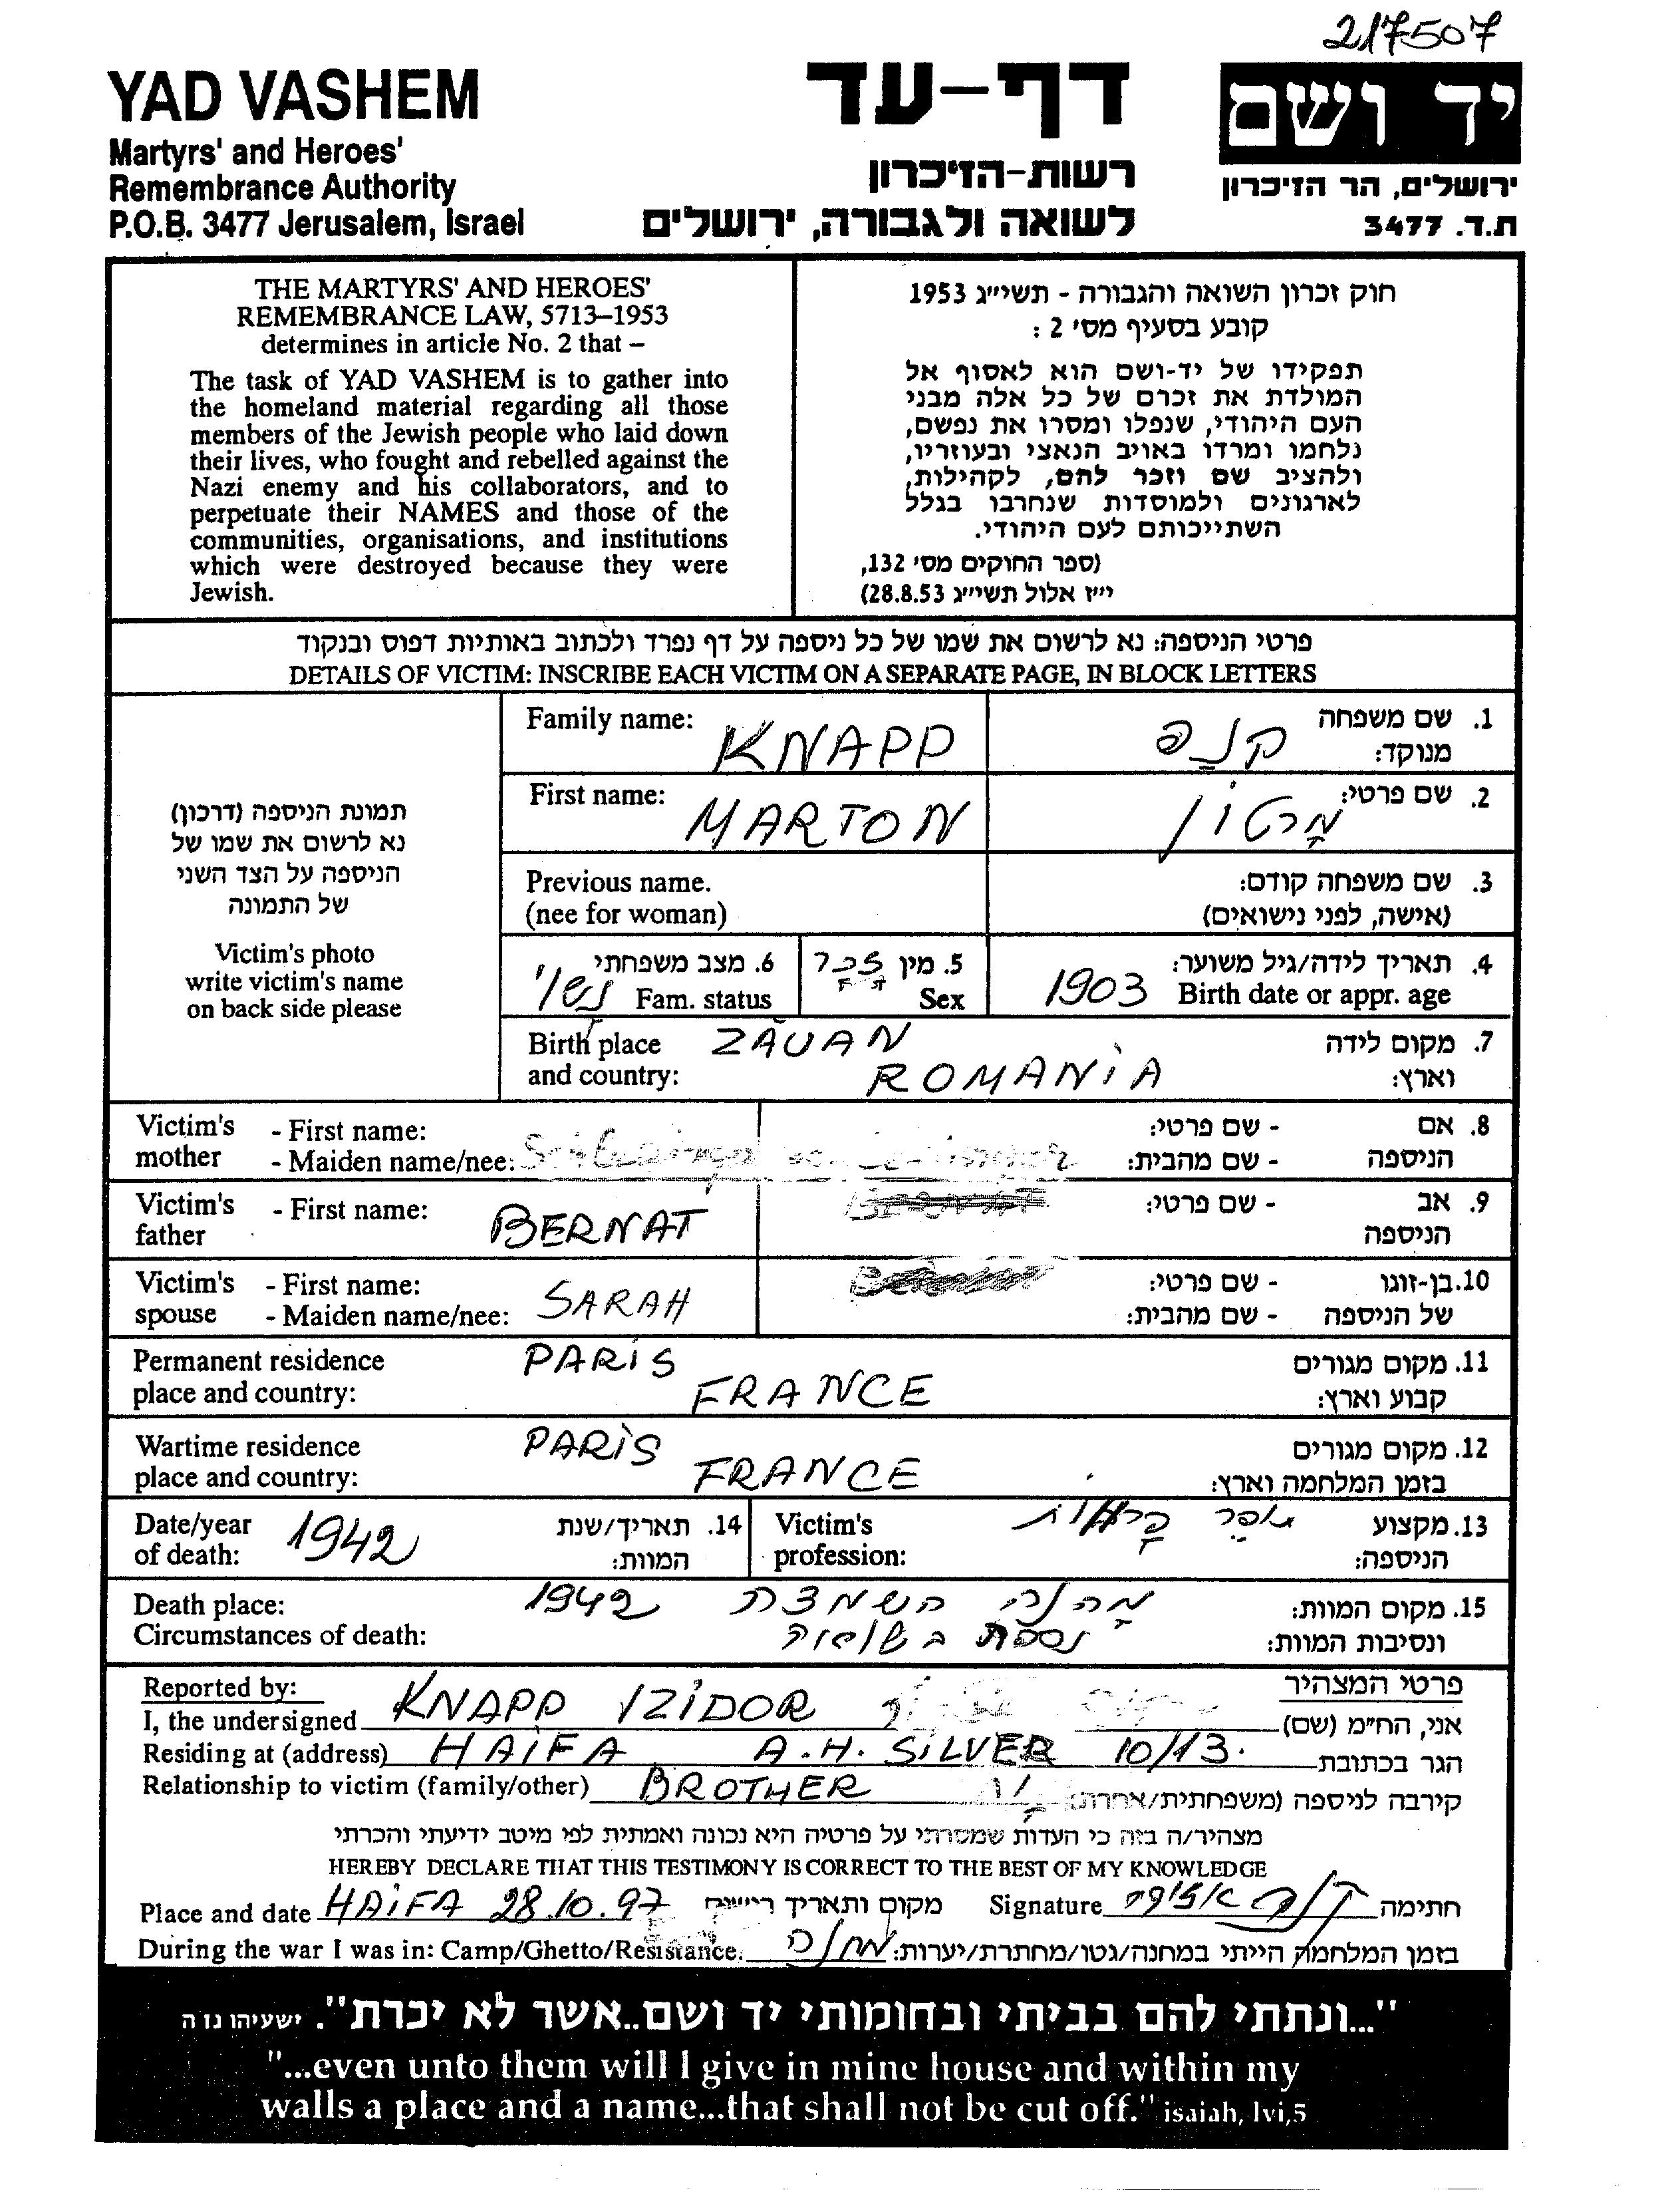 217507
YAD VASHEM
Martyrs' and Heroes'
Remembrance Authority
P.O.B. 3477 Jerusalem, Israel
דף-עד
רשות-הזיכרון
לשואה ולגבורה, ירושלים
יד ושם
ירושלים, הר הזיכרון
ת.ד. 3477
THE MARTYRS' AND HEROES'
REMEMBRANCE LAW, 5713–1953
determines in article No. 2 that –
The task of YAD VASHEM is to gather into
the homeland material regarding all those
members of the Jewish people who laid down
their lives, who fought and rebelled against the
Nazi enemy and his collaborators, and to
perpetuate their NAMES and those of the
communities, organisations, and institutions
which were destroyed because they were
Jewish.
חוק זכרון השואה והגבורה - תשי״ג 1953
קובע בסעיף מס׳ 2 :
תפקידו של יד-ושם הוא לאסוף אל
המולדת את זכרם של כל אלה מבני
העם היהודי, שנפלו ומסרו את נפשם,
נלחמו ומרדו באויב הנאצי ובעוזריו,
ולהציב שם וזכר להם, לקהילות,
לארגונים ולמוסדות שנחרבו בגלל
השתייכותם לעם היהודי.
(ספר החוקים מס׳ 132,
י״ז אלול תשי״ג 28.8.53)
פרטי הניספה: נא לרשום את שמו של כל ניספה על דף נפרד ולכתוב באותיות דפוס ובנקוד
DETAILS OF VICTIM: INSCRIBE EACH VICTIM ON A SEPARATE PAGE, IN BLOCK LETTERS
תמונת הניספה (דרכון)
נא לרשום את שמו של
הניספה על הצד השני
של התמונה
Victim's photo
write victim's name
on back side please
Family name: KNAPP
קנַפּ
1. שם משפחה
מנוקד:
First name: MARTON
מָרטון
2. שם פרטי:
Previous name.
(nee for woman)
3. שם משפחה קודם:
(אישה, לפני נישואים)
6. מצב משפחתי
Fam. status נשוי
5. מין זָכָר
Sex
4. תאריך לידה/גיל משוער:
Birth date or appr. age 1903
Birth place ZĂUAN
and country: ROMANIA
7. מקום לידה
וארץ:
Victim's - First name:
mother - Maiden name/nee:
8. אם - שם פרטי:
הניספה - שם מהבית:
Victim's - First name: BERNAT
father
9. אב - שם פרטי:
הניספה
Victim's - First name:
spouse - Maiden name/nee: SARAH
10. בן-זוגו - שם פרטי:
של הניספה - שם מהבית:
Permanent residence PARIS
place and country: FRANCE
11. מקום מגורים
קבוע וארץ:
Wartime residence PARIS
place and country: FRANCE
12. מקום מגורים
בזמן המלחמה וארץ:
Date/year 1942
of death:
14. תאריך/שנת
המוות:
Victim's
profession:
תופר
13. מקצוע
הניספה:
Death place: 1942 מָחנה השמדת
Circumstances of death: נספה בשואה
15. מקום המוות:
ונסיבות המוות:
Reported by:
פרטי המצהיר
I, the undersigned KNAPP IZIDOR
אני, הח״מ (שם)
Residing at (address) HAIFA A.H. SILVER 10/13.
הגר בכתובת
Relationship to victim (family/other) BROTHER
קירבה לניספה (משפחתית/אחרת)
מצהיר/ה בזה כי העדות שמסרתי על פרטיה היא נכונה ואמתית לפי מיטב ידיעתי והכרתי
HEREBY DECLARE THAT THIS TESTIMONY IS CORRECT TO THE BEST OF MY KNOWLEDGE
Place and date HAIFA 28.10.97 מקום ותאריך רישום
Signature קנפ איזידור חתימה
During the war I was in: Camp/Ghetto/Resistance. מחנה בזמן המלחמה הייתי במחנה/גטו/מחתרת/יערות:
"...ונתתי להם בביתי ובחומותי יד ושם..אשר לא יכרת". ישעיהו נו ה
"...even unto them will I give in mine house and within my
walls a place and a name...that shall not be cut off." isaiah, lvi,5